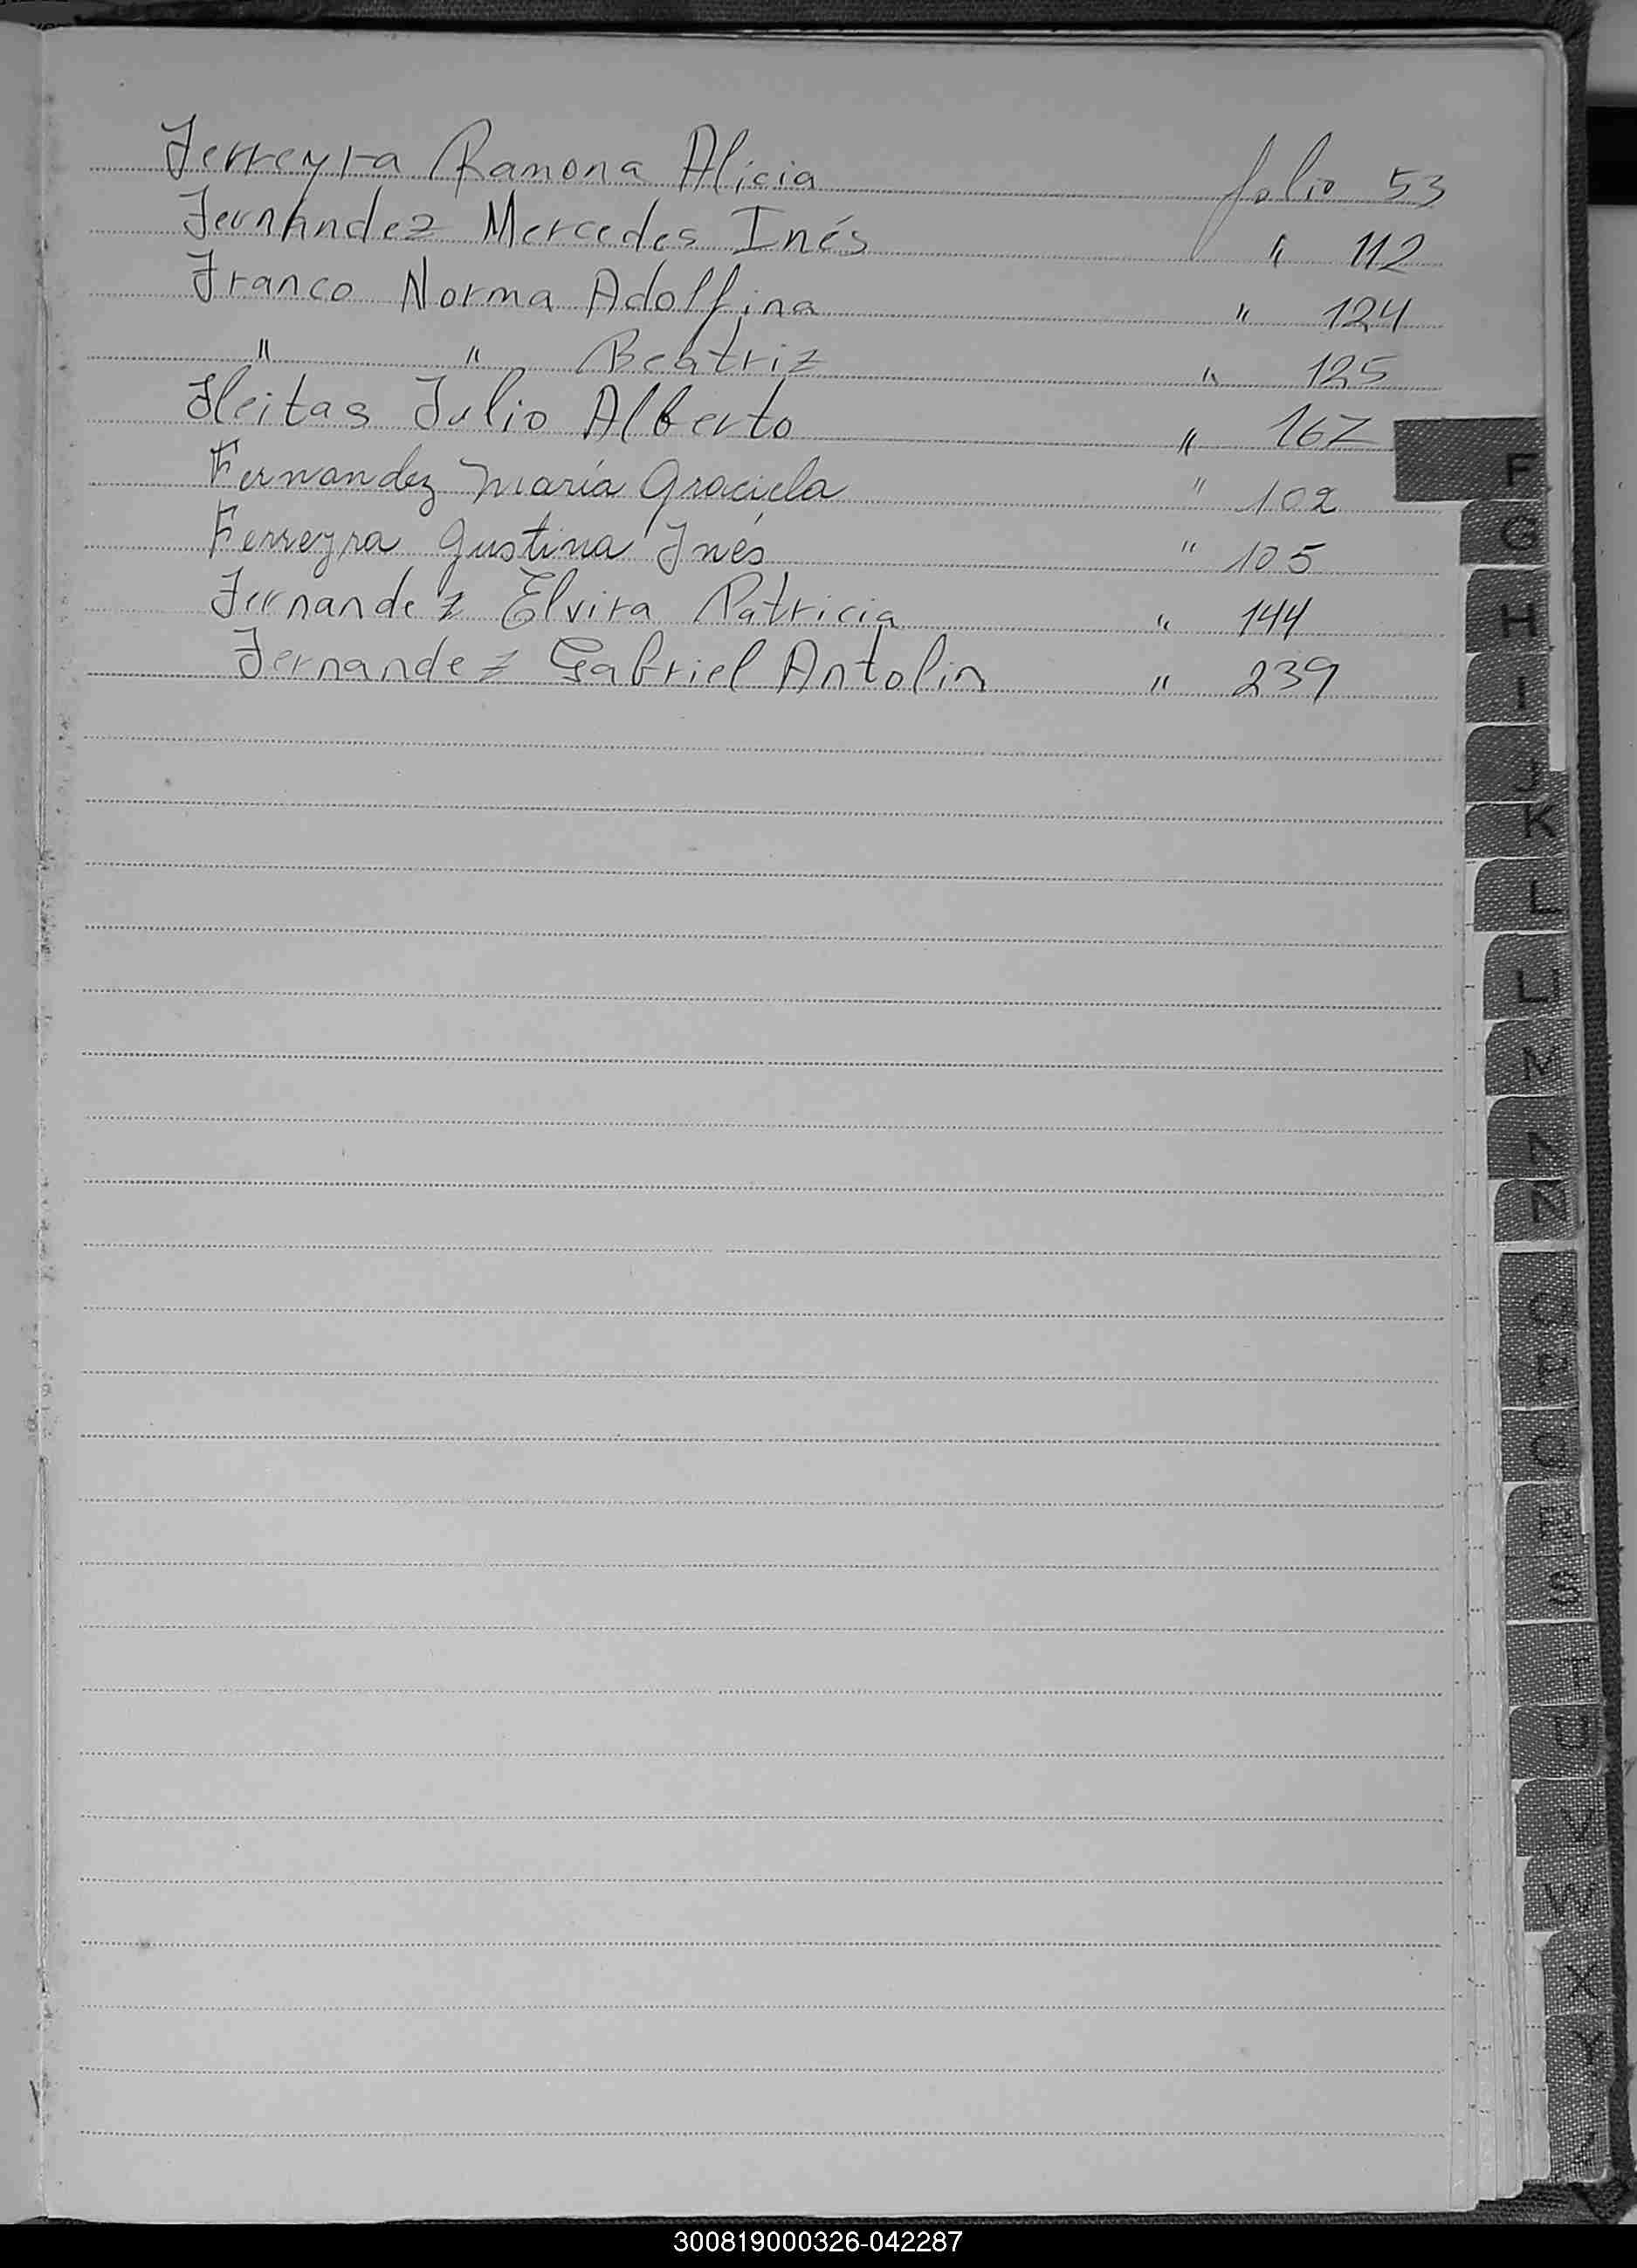 Ferreyra Ramona Alicia folio 53
Fernández Mercedes Inés " 112
Franco Norma Adolfina " 124
" " Beatriz " 125
Fleitas Julio Alberto " 167
Fernandez María Graciela " 102
Ferreyra Justina Inés " 105
Fernandez Elvira Patricia " 144
Fernandez Gabriel Antolin " 239
F
G
H
I
J
K
L
LL
M
N
Ñ
O
P
Q
R
S
T
U
V
W
X
Y
300819000326-042287